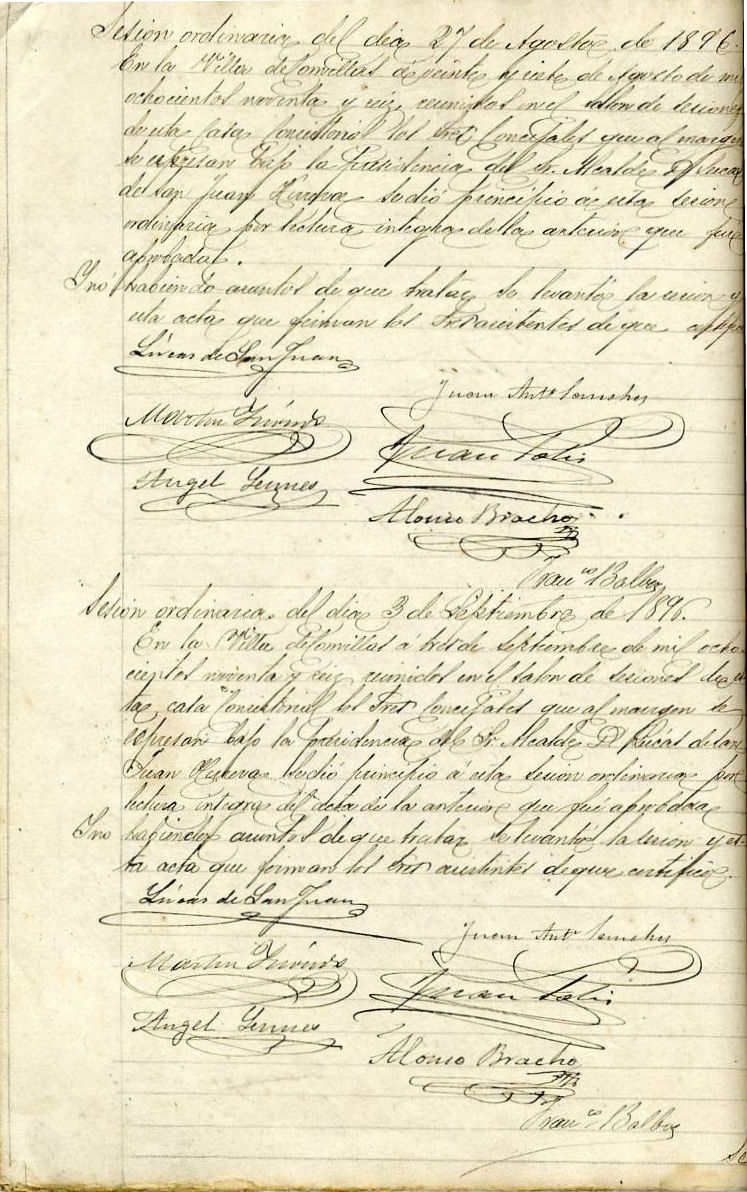 Sesion ordinaria del dia 27 de Agosto de 1896.
En la Villa de Comillas á veinte y siete de Agosto de mil
ochocientos noventa y seis reunidos en el salon de sesiones
de esta casa Consistorial los Sres Concejales que al margen
se espresan bajo la Presidencia del Sr. Alcalde D. Lucas
de San Juan se dió principio á esta sesion
ordinaria por lectura integra de la anterior que fué
aprobada.
Y no habiendo asuntos de que tratar se levantó la sesion y
esta acta que firman los Sres asistentes de que
Lúcas de San Juan
Juan Anto Sanchez
Martin
Juan
Angel
Alonso Bracho
Franco Balbas
Sesion ordinaria del dia 3 de Septiembre de 1896.
En la Villa de Comillas á tres de septiembre de mil ocho-
cientos noventa y seis reunidos en el salon de sesiones de es-
ta casa Consistorial los Sres Concejales que al margen se
espresan bajo la presidencia del Sr. Alcalde D. Lucas de San
Juan se dió principio á esta sesion ordinaria por
lectura integra del acta de la anterior que fué aprobada
Y no habiendo asuntos de que tratar se levantó la sesion y es-
ta acta que forman los Sres asistentes de que certifico.
Lúcas de San Juan
Juan Anto Sanchez
Martin
Juan
Angel
Alonso Bracho
Franco Balbas
Se